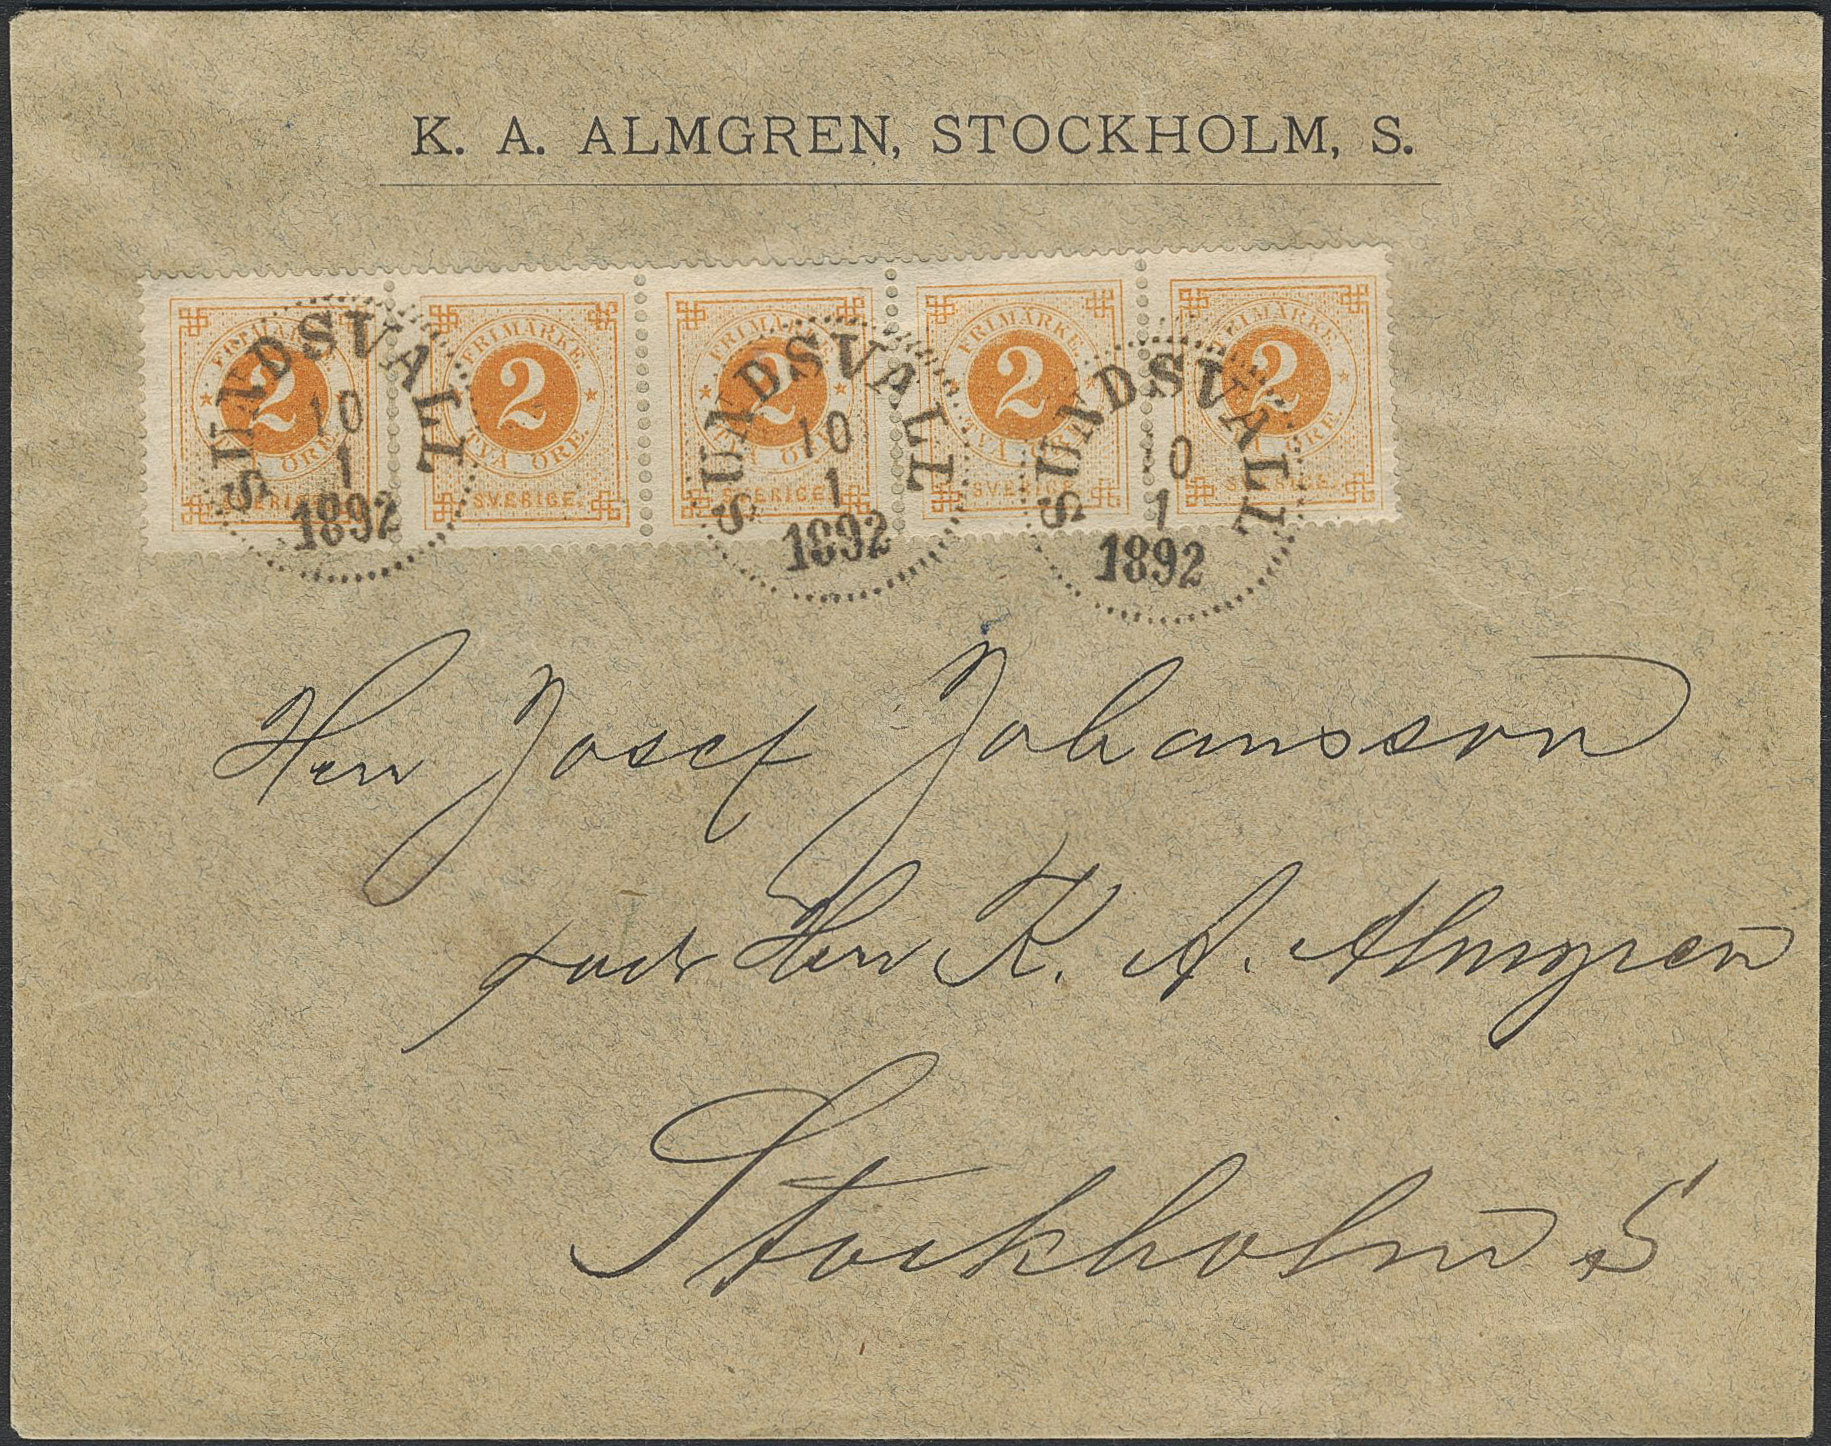 K. A. ALMGREN, STOCKHOLM, S.
FRIMÄRKE 2 TVÅ ÖRE SVERIGE.
FRIMÄRKE 2 TVÅ ÖRE SVERIGE.
FRIMÄRKE 2 TVÅ ÖRE SVERIGE.
FRIMÄRKE 2 TVÅ ÖRE SVERIGE.
FRIMÄRKE 2 TVÅ ÖRE SVERIGE.
SUNDSVALL
10
1
1892
SUNDSVALL
10
1
1892
SUNDSVALL
0
1
1892
Herr Josef Johansson
Herr K. A. Almgren
Stockholm S